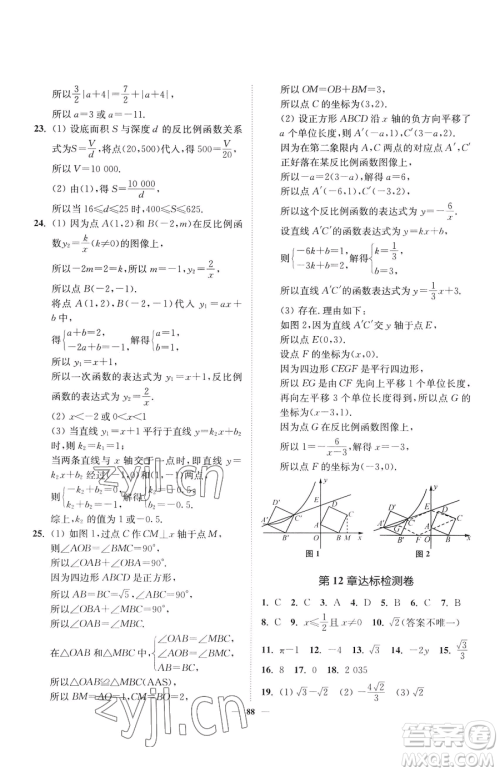 所以3/2|a+4|=7/2+|a+4|,
所以a=3或a=-11.
23. (1) 设底面积S与深度d的反比例函数关系
式为S=V/d,将点(20,500)代入,得500=V/20,
所以V=10 000.
(2) 由(1),得S=10 000/d,
所以当16≤d≤25时,400≤S≤625.
24. (1) 因为点A(1,2)和B(-2,m)在反比例函
数y₂=k/x(k≠0)的图像上,
所以-2m=2=k,所以m=-1,k=2,
所以点B(-2,-1).
将点A(1,2),B(-2,-1)代入y₁=ax+
b中,
得{a+b=2, -2a+b=-1, 解得{a=1, b=1,
所以y₁=x+1,
所以一次函数的表达式为y=x+1,反比例
函数的表达式为y₂=2/x.
(2) x<-2或0<x<1
(3) 当直线y₁=x+1与直线y=k₂x+b₂
时,k₂=1,
当两条直线与x轴交于一点时,此时y=
k₂x+b₂经过(-1,0)和(1,-1),
所以
综上,k₂的值为1或-0.5.
25. (1) 如图1,过点C作CM⊥x轴于点M,
则∠AOB=∠BMC=90°,
所以∠OAB+∠ABO=90°.
因为四边形ABCD是正方形,
所以BC=AB=√5,∠ABC=90°,
所以∠OBA+∠MBC=90°,
所以∠OAB=∠MBC.
在△OAB和△MBC中,{∠OAB=∠MBC, ∠AOB=∠BMC, AB=BC,
所以△OAB≌△MBC(AAS),
所以BM=AO=1,MC=OB=2,
所以OM=OB+BM=3,
所以点C的坐标为(3,2).
(2) 设正方形ABCD沿x轴的负方向平移了
a个单位长度,
因为在第二象限内A,C两点的对应点A′,C′
正好落在某反比例函数的图像上,
所以-a·1=2(3-a),解得a=6,
所以该反比例函数的表达式为y=-6/x.
设直线A′C′的函数表达式为y=kx+b,
则{-6k+b=1, -3k+b=2, 解得{k=1/3, b=3,
所以直线A′C′的函数表达式为y=1/3x+3.
(3) 存在.理由如下:
如图2,因为直线A′C′交y轴于点E,
所以点E(0,3).
设点F的坐标为(x,0).
因为四边形CEGF是平行四边形,
所以EG是由CF向上平移1个单位长度,
再向左平移3个单位长度得到的,
所以1=-6/(x-3),解得x=-3,
所以点F的坐标为(-3,0).
图1
图2
第12章达标检测卷
1. C 2. C 3. A 4. D 5. C 6. C 7. B
8. C 9. x≤1/3且x≠0 10. √2(答案不唯一)
11. π-3 12. x>4 13. √2 14. -2y 15. √3/3
16. 8 17. 0 18. 2 035
19. (1) √3-√2 (2) -4√2/3 (3) √2
88
zyjl.cn